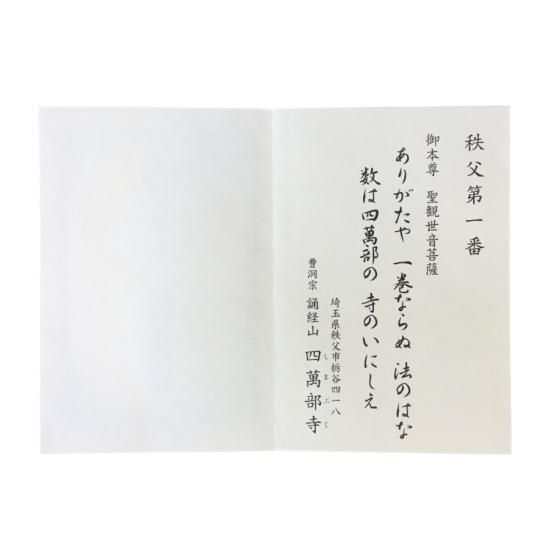 秩父第一番
御本尊 聖観世音菩薩
ありがたや 一巻ならぬ 法のはな
数は四萬部の 寺のいにしえ
埼玉県秩父市栃谷四一八
曹洞宗 誦経山 四萬部寺
しまぶじ